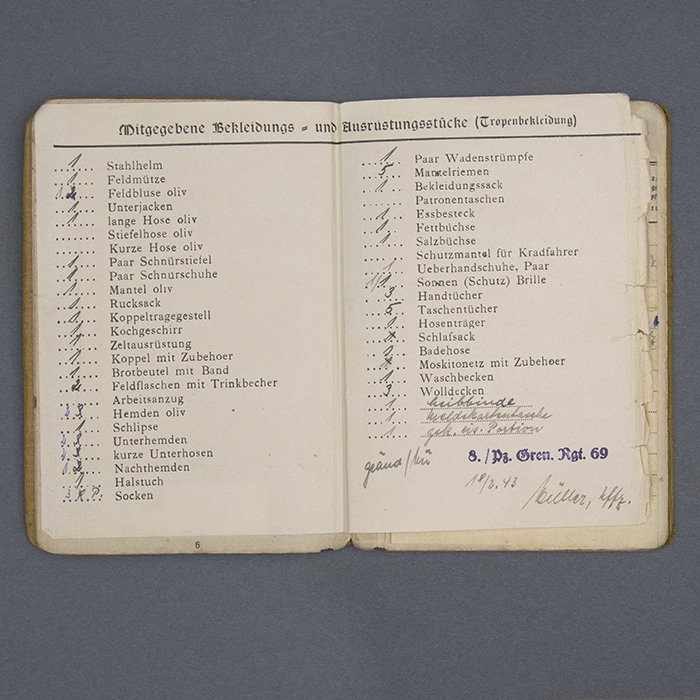 Mitgegebene Bekleidungs- und Ausrüstungsstücke (Tropenbekleidung)
1 Stahlhelm
1 Feldmütze
Feldbluse oliv
1 Unterjacken
1 lange Hose oliv
Stiefelhose oliv
Kurze Hose oliv
1 Paar Schnürstiefel
1 Paar Schnurschuhe
1 Mantel oliv
1 Rucksack
1 Koppeltragegestell
1 Kochgeschirr
1 Zeltausrüstung
1 Koppel mit Zubehoer
1 Brotbeutel mit Band
2 Feldflaschen mit Trinkbecher
Arbeitsanzug
Hemden oliv
1 Schlipse
Unterhemden
kurze Unterhosen
Nachthemden
1 Halstuch
Socken
6
1 Paar Wadenstrümpfe
5 Mantelriemen
1 Bekleidungssack
Patronentaschen
1 Essbesteck
1 Fettbüchse
1 Salzbüchse
Schutzmantel für Kradfahrer
Ueberhandschuhe, Paar
Sonnen (Schutz) Brille
3 Handtücher
5 Taschentücher
1 Hosenträger
Schlafsack
Badehose
Moskitonetz mit Zubehoer
1 Waschbecken
3 Wolldecken
1 Leibbinde
1 Meldekartentasche
1 Portion
8./Pz. Gren. Rgt. 69
Müller, Uffz.